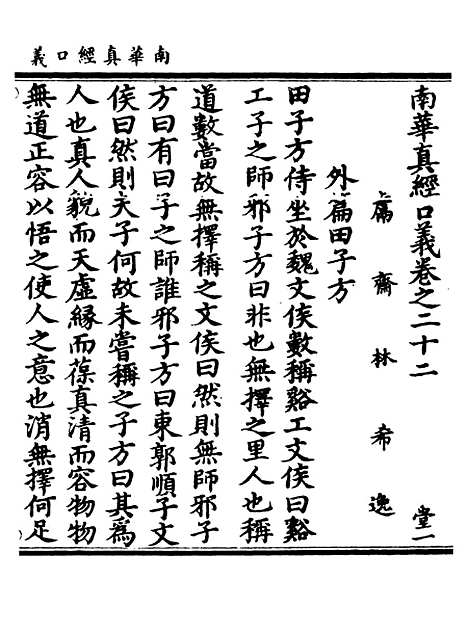 南華真經口義
南華真經口義卷之二十二 堂一
鬳齋林希逸
外篇田子方
田子方侍坐於魏文侯數稱谿工文侯曰谿
工子之師邪子方曰非也無擇之里人也稱
道數當故無擇稱之文侯曰然則無師邪子
方曰有曰子之師誰邪子方曰東郭順子文
侯曰然則夫子何故未嘗稱之子方曰其爲
人也真人貌而天虛緣而葆真清而容物物
無道正容以悟之使人之意也消無擇何足